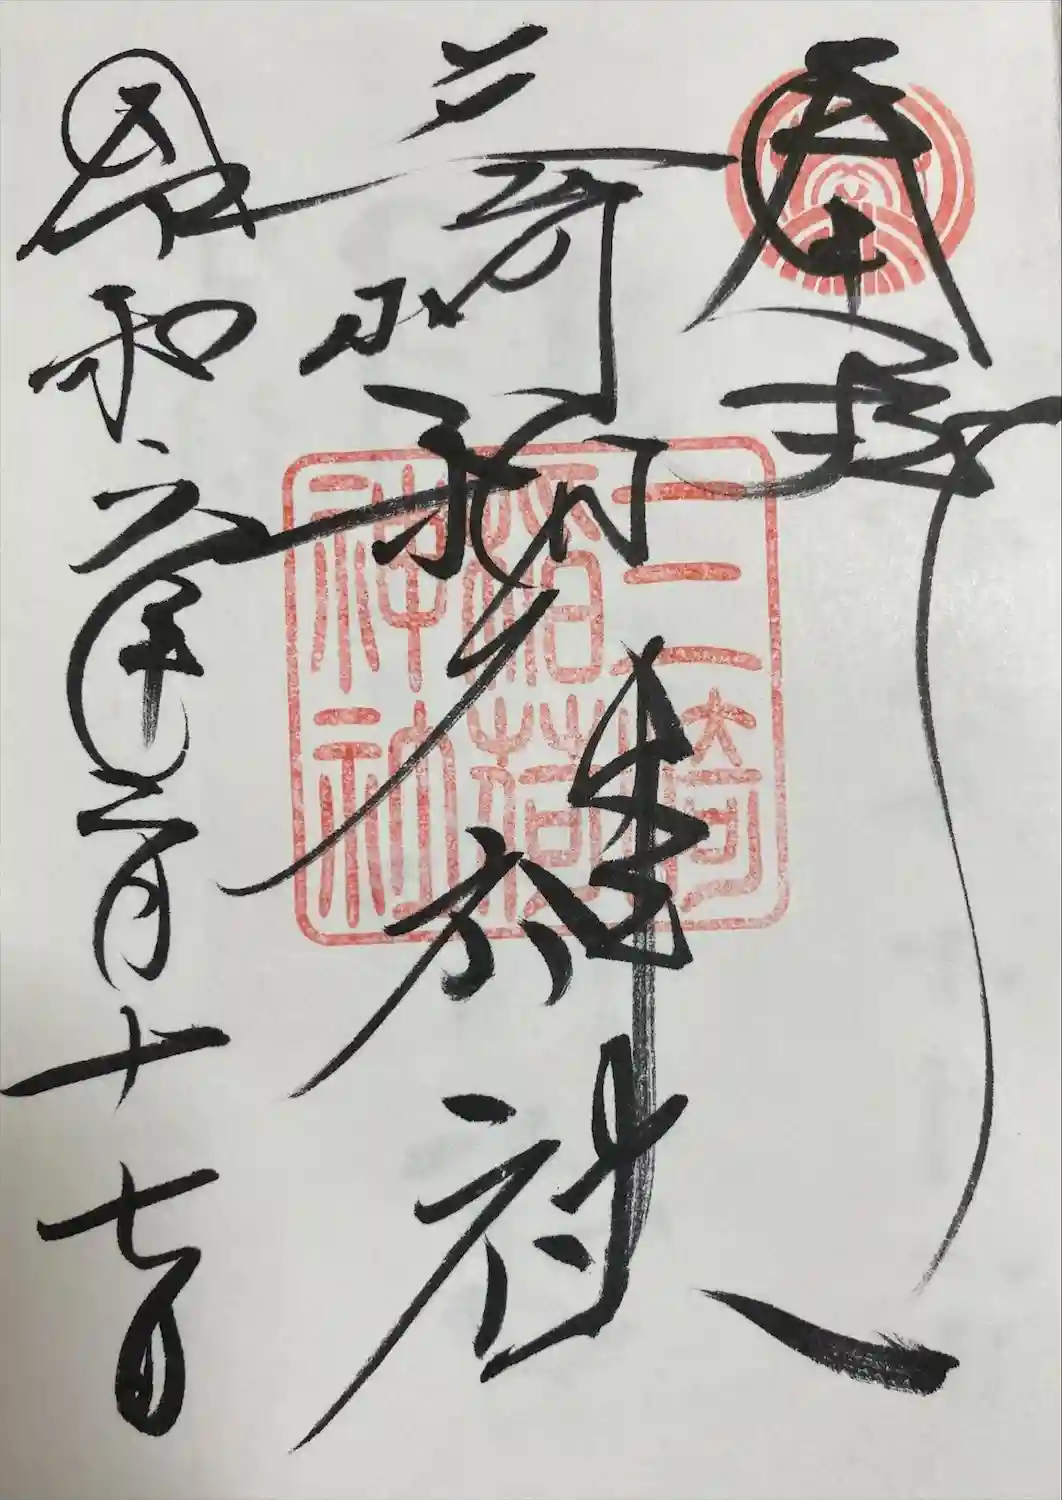 奉拝
三崎稲荷神社
令和六年二月十七日
三崎
稲荷
神社